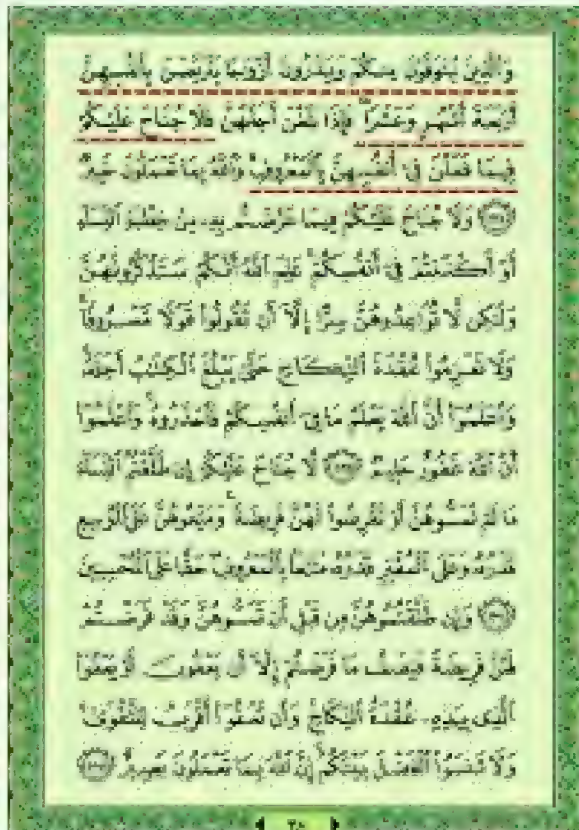 وَالَّذِينَ يُتَوَفَّوْنَ مِنكُمْ وَيَذَرُونَ أَزْوَاجًا يَتَرَبَّصْنَ بِأَنفُسِهِنَّ
أَرْبَعَةَ أَشْهُرٍ وَعَشْرًا فَإِذَا بَلَغْنَ أَجَلَهُنَّ فَلَا جُنَاحَ عَلَيْكُمْ
فِيمَا فَعَلْنَ فِي أَنفُسِهِنَّ بِالْمَعْرُوفِ وَاللَّهُ بِمَا تَعْمَلُونَ خَبِيرٌ
﴿٢٣٤﴾ وَلَا جُنَاحَ عَلَيْكُمْ فِيمَا عَرَّضْتُم بِهِ مِنْ خِطْبَةِ النِّسَاءِ
أَوْ أَكْنَنتُمْ فِي أَنفُسِكُمْ عَلِمَ اللَّهُ أَنَّكُمْ سَتَذْكُرُونَهُنَّ
وَلَٰكِن لَّا تُوَاعِدُوهُنَّ سِرًّا إِلَّا أَن تَقُولُوا قَوْلًا مَّعْرُوفًا
وَلَا تَعْزِمُوا عُقْدَةَ النِّكَاحِ حَتَّىٰ يَبْلُغَ الْكِتَابُ أَجَلَهُ
وَاعْلَمُوا أَنَّ اللَّهَ يَعْلَمُ مَا فِي أَنفُسِكُمْ فَاحْذَرُوهُ وَاعْلَمُوا
أَنَّ اللَّهَ غَفُورٌ حَلِيمٌ ﴿٢٣٥﴾ لَّا جُنَاحَ عَلَيْكُمْ إِن طَلَّقْتُمُ النِّسَاءَ
مَا لَمْ تَمَسُّوهُنَّ أَوْ تَفْرِضُوا لَهُنَّ فَرِيضَةً وَمَتِّعُوهُنَّ عَلَى الْمُوسِعِ
قَدَرُهُ وَعَلَى الْمُقْتِرِ قَدَرُهُ مَتَاعًا بِالْمَعْرُوفِ حَقًّا عَلَى الْمُحْسِنِينَ
﴿٢٣٦﴾ وَإِن طَلَّقْتُمُوهُنَّ مِن قَبْلِ أَن تَمَسُّوهُنَّ وَقَدْ فَرَضْتُمْ
لَهُنَّ فَرِيضَةً فَنِصْفُ مَا فَرَضْتُمْ إِلَّا أَن يَعْفُونَ أَوْ يَعْفُوَا
الَّذِي بِيَدِهِ عُقْدَةُ النِّكَاحِ وَأَن تَعْفُوا أَقْرَبُ لِلتَّقْوَىٰ
وَلَا تَنسَوُا الْفَضْلَ بَيْنَكُمْ إِنَّ اللَّهَ بِمَا تَعْمَلُونَ بَصِيرٌ ﴿٢٣٧﴾
٣٨